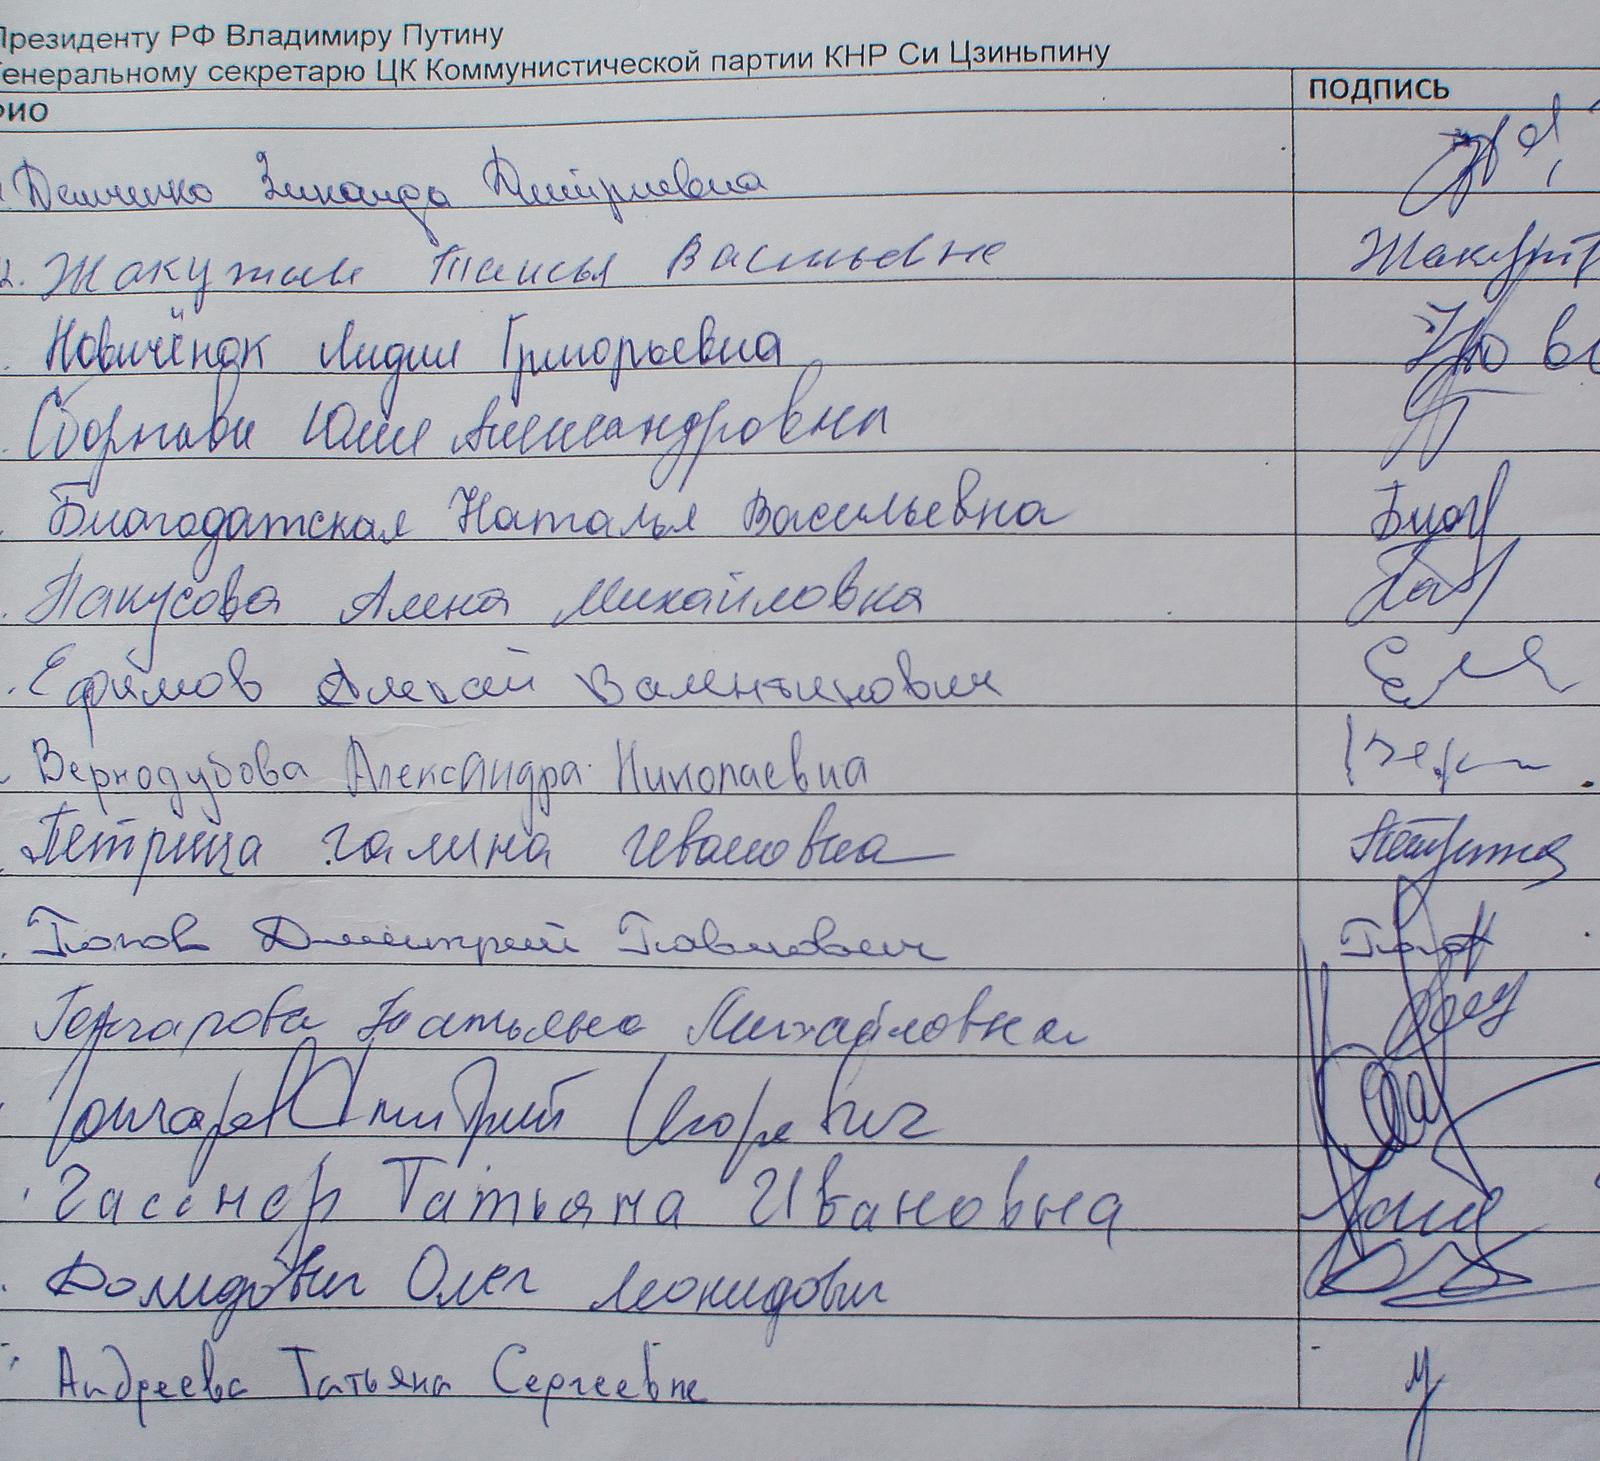 Президенту РФ Владимиру Путину
Генеральному секретарю ЦК Коммунистической партии КНР Си Цзиньпину
ФИО ПОДПИСЬ
Демченко Зинаида Дмитриевна
2. Таисья Васильевне
Новичёнок Лидия Григорьевна
Юлия Александровна
Благодатская Наталья Васильевна
Пакусова Алена Михайловна
Ефимов Алексей Валентинович
Вернодубова Александра Николаевна
Петрица Галина Ивановна
Попов Дмитрий Павлович Попов
Гончарова Татьяна Михайловна
Гончаров Дмитрий Игоревич
Гасснер Татьяна Ивановна
Долидович Олег Леонидович
Андреева Татьяна Сергеевне